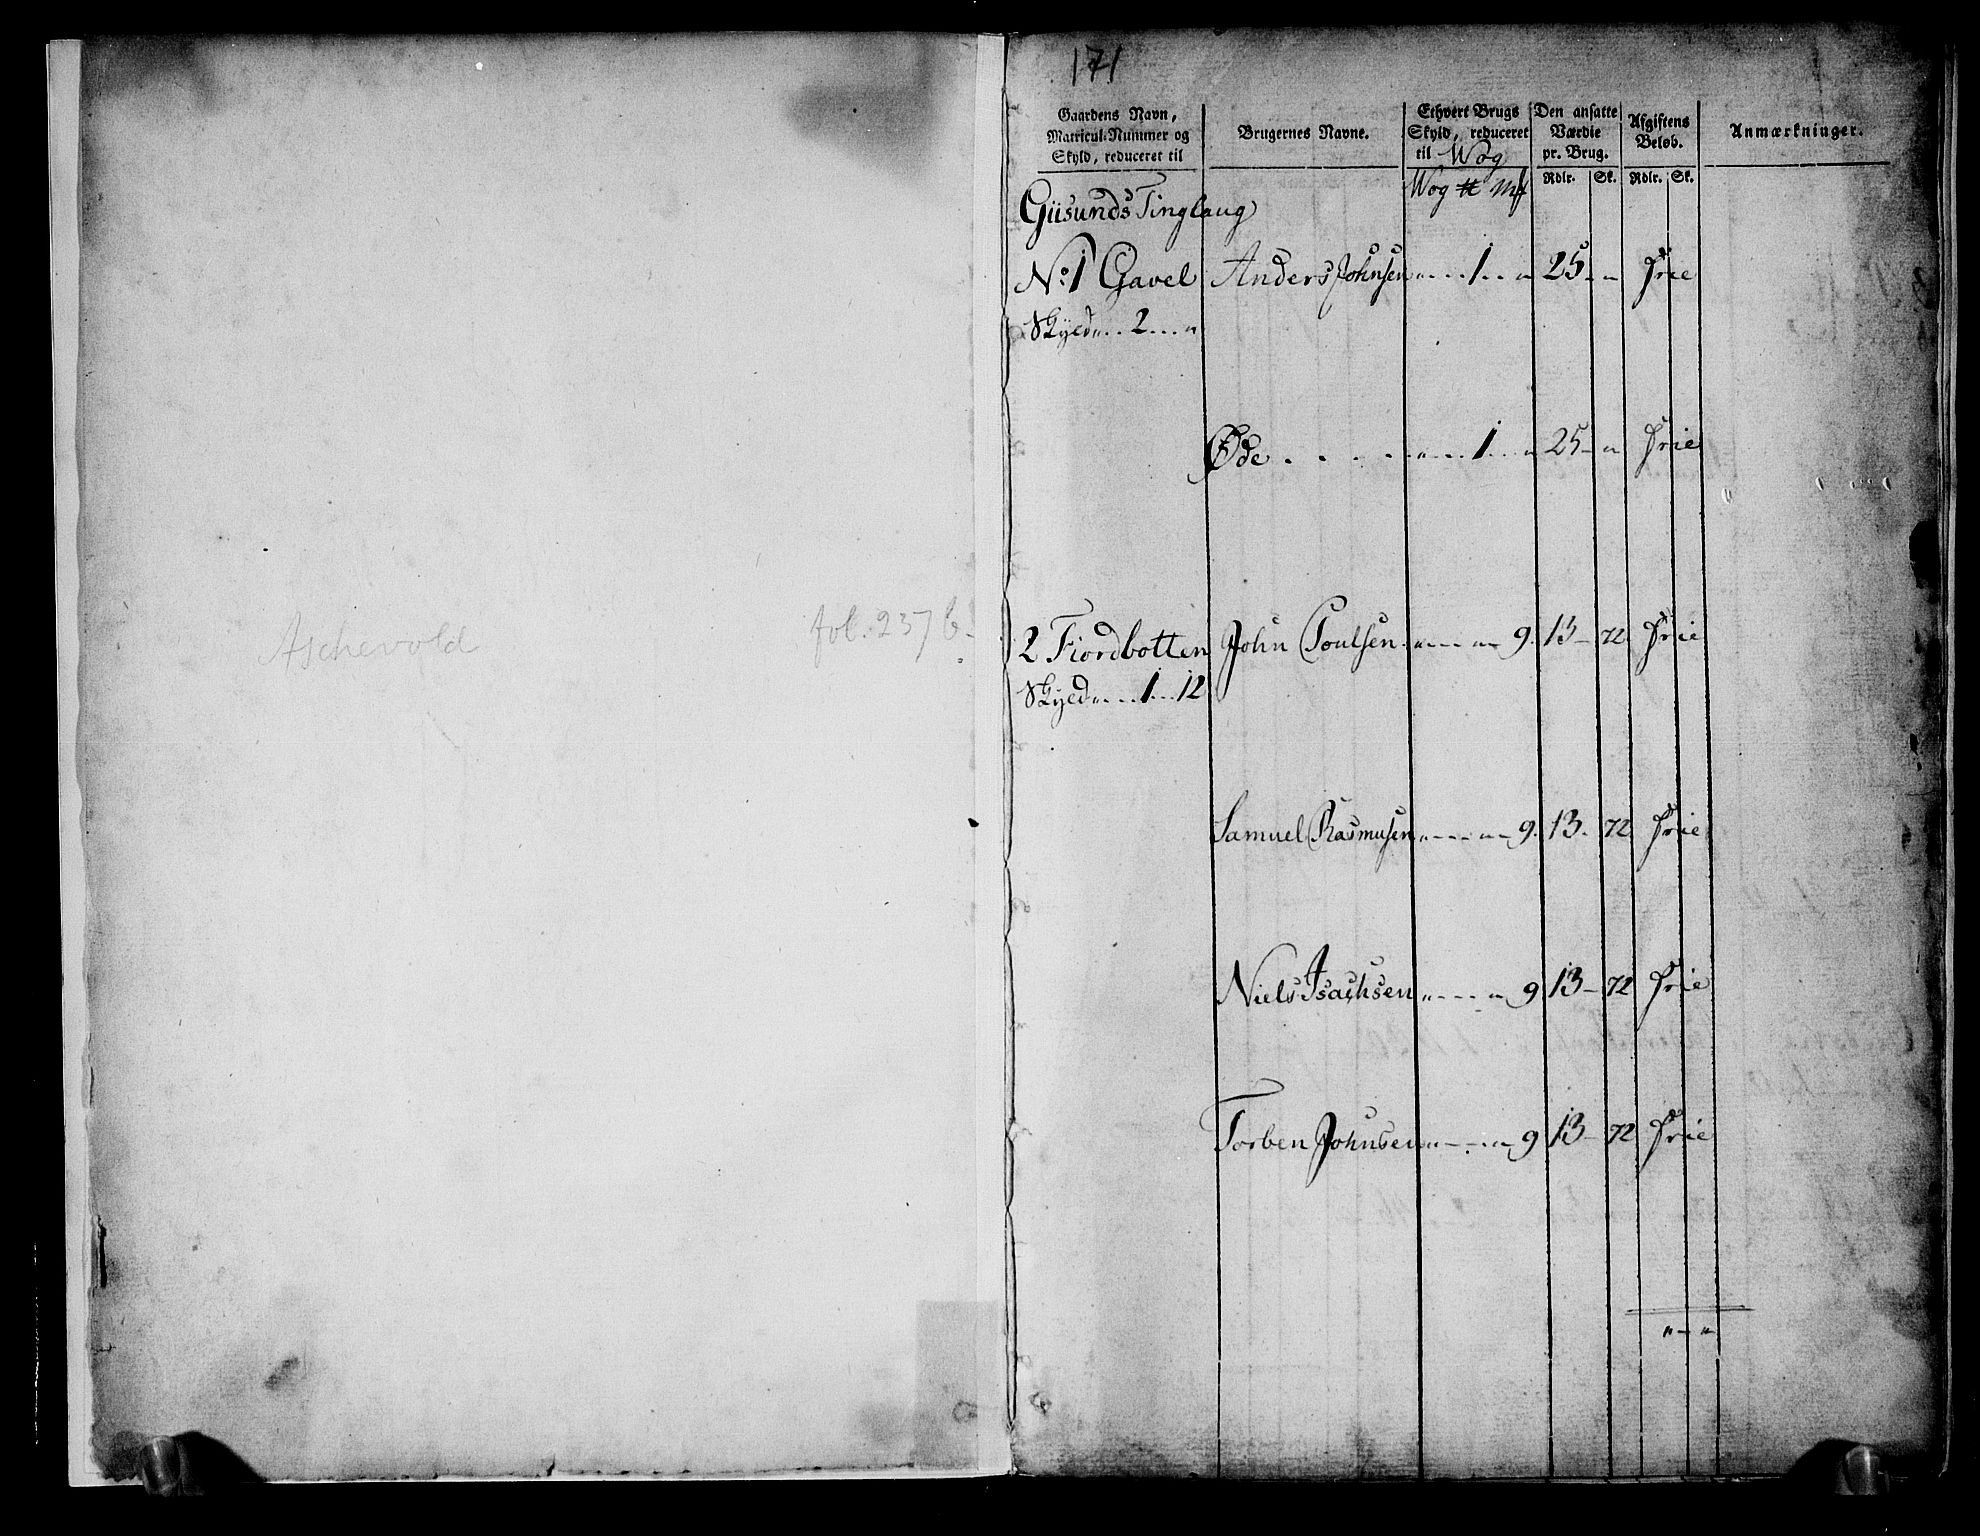 Aschevold fol. 237 b.
171
Gaardens Navn, Matricul-Nummer og Skyld, reduceret til
Brugernes Navne.
Ethvert Brugs Skyld, reduceret til Wog
Den ansatte Værdie pr. Brug.
Afgiftens Beløb.
Anmærkninger.
Wog ℔ mk Rdlr. Sk. Rdlr. Sk.
Giisunds Tinglaug
No: 1 Gavel Anders Johnsen " 1 " 25 - " Frie
Skyld " 2 "
Øde " 1 " 25 - " Frie
2 Fiordbotten John Poulsen " " 9. 13 - 72 Frie
Skyld " 1 12
Samuel Rasmusen " " 9. 13 - 72 Frie
Niels Isachsen " " 9 13 - 72 Frie
Torben Johnsen " " 9 13 - 72 Frie
" - "